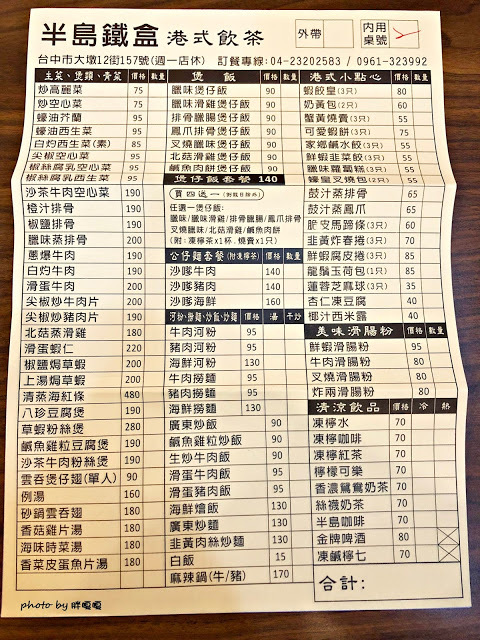 半島鐵盒 港式飲茶
外帶
內用
桌號
台中市大墩12街157號(週一店休) 訂餐專線:04-23202583 / 0961-323992
主菜、煲類、青菜 價格 數量
炒高麗菜 75
炒空心菜 75
蠔油芥蘭 95
蠔油西生菜 95
白灼西生菜(素) 85
尖椒空心菜 95
椒絲腐乳空心菜 95
椒絲腐乳西生菜 95
沙茶牛肉空心菜 190
橙汁排骨 190
椒鹽排骨 190
臘味蒸排骨 200
蔥爆牛肉 190
白灼牛肉 190
滑蛋牛肉 200
尖椒炒牛肉片 200
尖椒炒豬肉片 190
北菇蒸滑雞 180
滑蛋蝦仁 220
椒鹽焗草蝦 200
上湯焗草蝦 200
清蒸海紅條 480
八珍豆腐煲 190
草蝦粉絲煲 280
鹹魚雞粒豆腐煲 190
沙茶牛肉粉絲煲 190
雲吞煲仔翅(單人) 90
例湯 160
砂鍋雲吞雞 200
香菇雞片湯 180
海味時菜湯 180
香菜皮蛋魚片湯 180
煲飯 價格 數量
臘味煲仔飯 90
臘味滑雞煲仔飯 90
排骨臘腸煲仔飯 90
鳳爪排骨煲仔飯 90
叉燒臘味煲仔飯 90
北菇滑雞煲仔飯 90
鹹魚肉餅煲仔飯 90
煲仔飯套餐 140
買四送一
任選一煲仔飯:
臘味/臘味滑雞/排骨臘腸/鳳爪排骨
叉燒臘味/北菇滑雞/鹹魚肉餅
(附:凍檸茶x1杯.燒賣x1只)
公仔麵套餐(附凍檸茶) 價格 數量
沙嗲牛肉 140
沙嗲豬肉 140
沙嗲海鮮 160
河粉、撈麵、炒飯、炒麵 價格 湯 干炒
牛肉河粉 95
豬肉河粉 95
海鮮河粉 130
牛肉撈麵 95
豬肉撈麵 95
海鮮撈麵 130
廣東炒飯 90
鹹魚雞粒炒飯 90
生炒牛肉飯 90
滑蛋牛肉飯 90
滑蛋豬肉飯 90
海鮮燴飯 130
廣東炒麵 130
韭黃肉絲炒麵 130
白飯 15
麻辣鍋(牛/豬) 170
港式小點心 價格 數量
蝦餃皇(3只) 80
奶黃包(2只) 60
蟹黃燒賣(3只) 55
可愛蝦餅(3只) 75
家鄉鹹水餃(3只) 55
鮮蝦韭菜餃(3只) 55
臘味蘿蔔糕(3只) 55
蠔皇叉燒包(2只) 55
鼓汁蒸排骨 65
鼓汁蒸鳳爪 65
脆皮馬蹄條(3只) 60
韭黃炸春捲(3只) 70
鮮蝦腐皮捲(3只) 85
龍鬚玉荷包(1只) 85
蓮蓉芝麻球(3只) 35
杏仁凍豆腐 40
椰汁西米露 40
美味滑腸粉 價格 數量
鮮蝦滑腸粉 95
牛肉滑腸粉 80
叉燒滑腸粉 80
炸兩滑腸粉 80
清涼飲品 價格 冷 熱
凍檸水 70
凍檸咖啡 70
凍檸紅茶 70
檸檬可樂 70
香濃鴛鴦奶茶 70
絲襪奶茶 70
半島咖啡 70
金牌啤酒 80
凍鹹檸七 70
合計:
photo by 胖嘎嘎